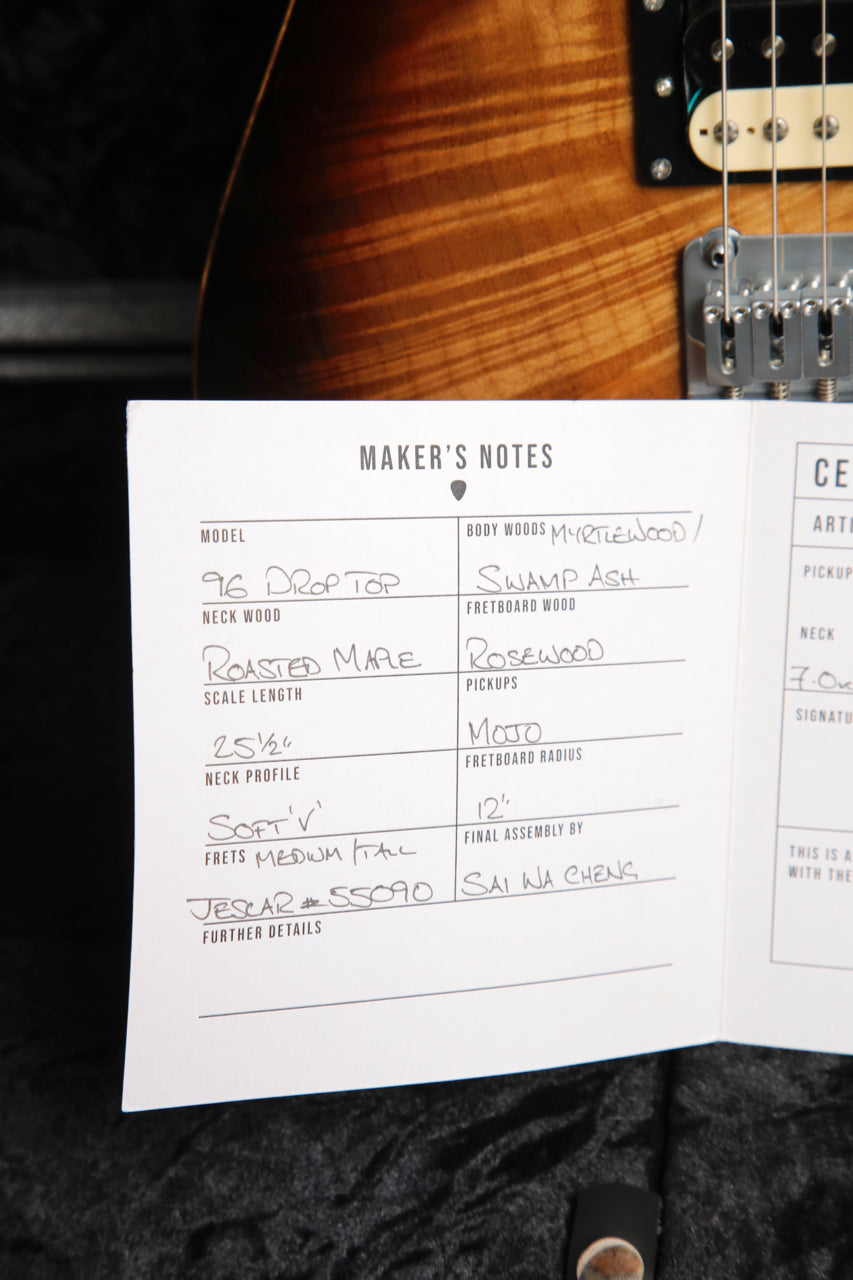 MAKER'S NOTES
MODEL
96 DROP TOP
BODY WOODS MYRTLEWOOD /
SWAMP ASH
NECK WOOD
ROASTED MAPLE
FRETBOARD WOOD
ROSEWOOD
SCALE LENGTH
25½"
PICKUPS
MOJO
NECK PROFILE
SOFT 'V'
FRETBOARD RADIUS
12"
FRETS MEDIUM / TALL
JESCAR # 55090
FINAL ASSEMBLY BY
SAI WA CHENG
FURTHER DETAILS
CE
ARTI
PICKUP
NECK
SIGNATU
THIS IS A
WITH THE